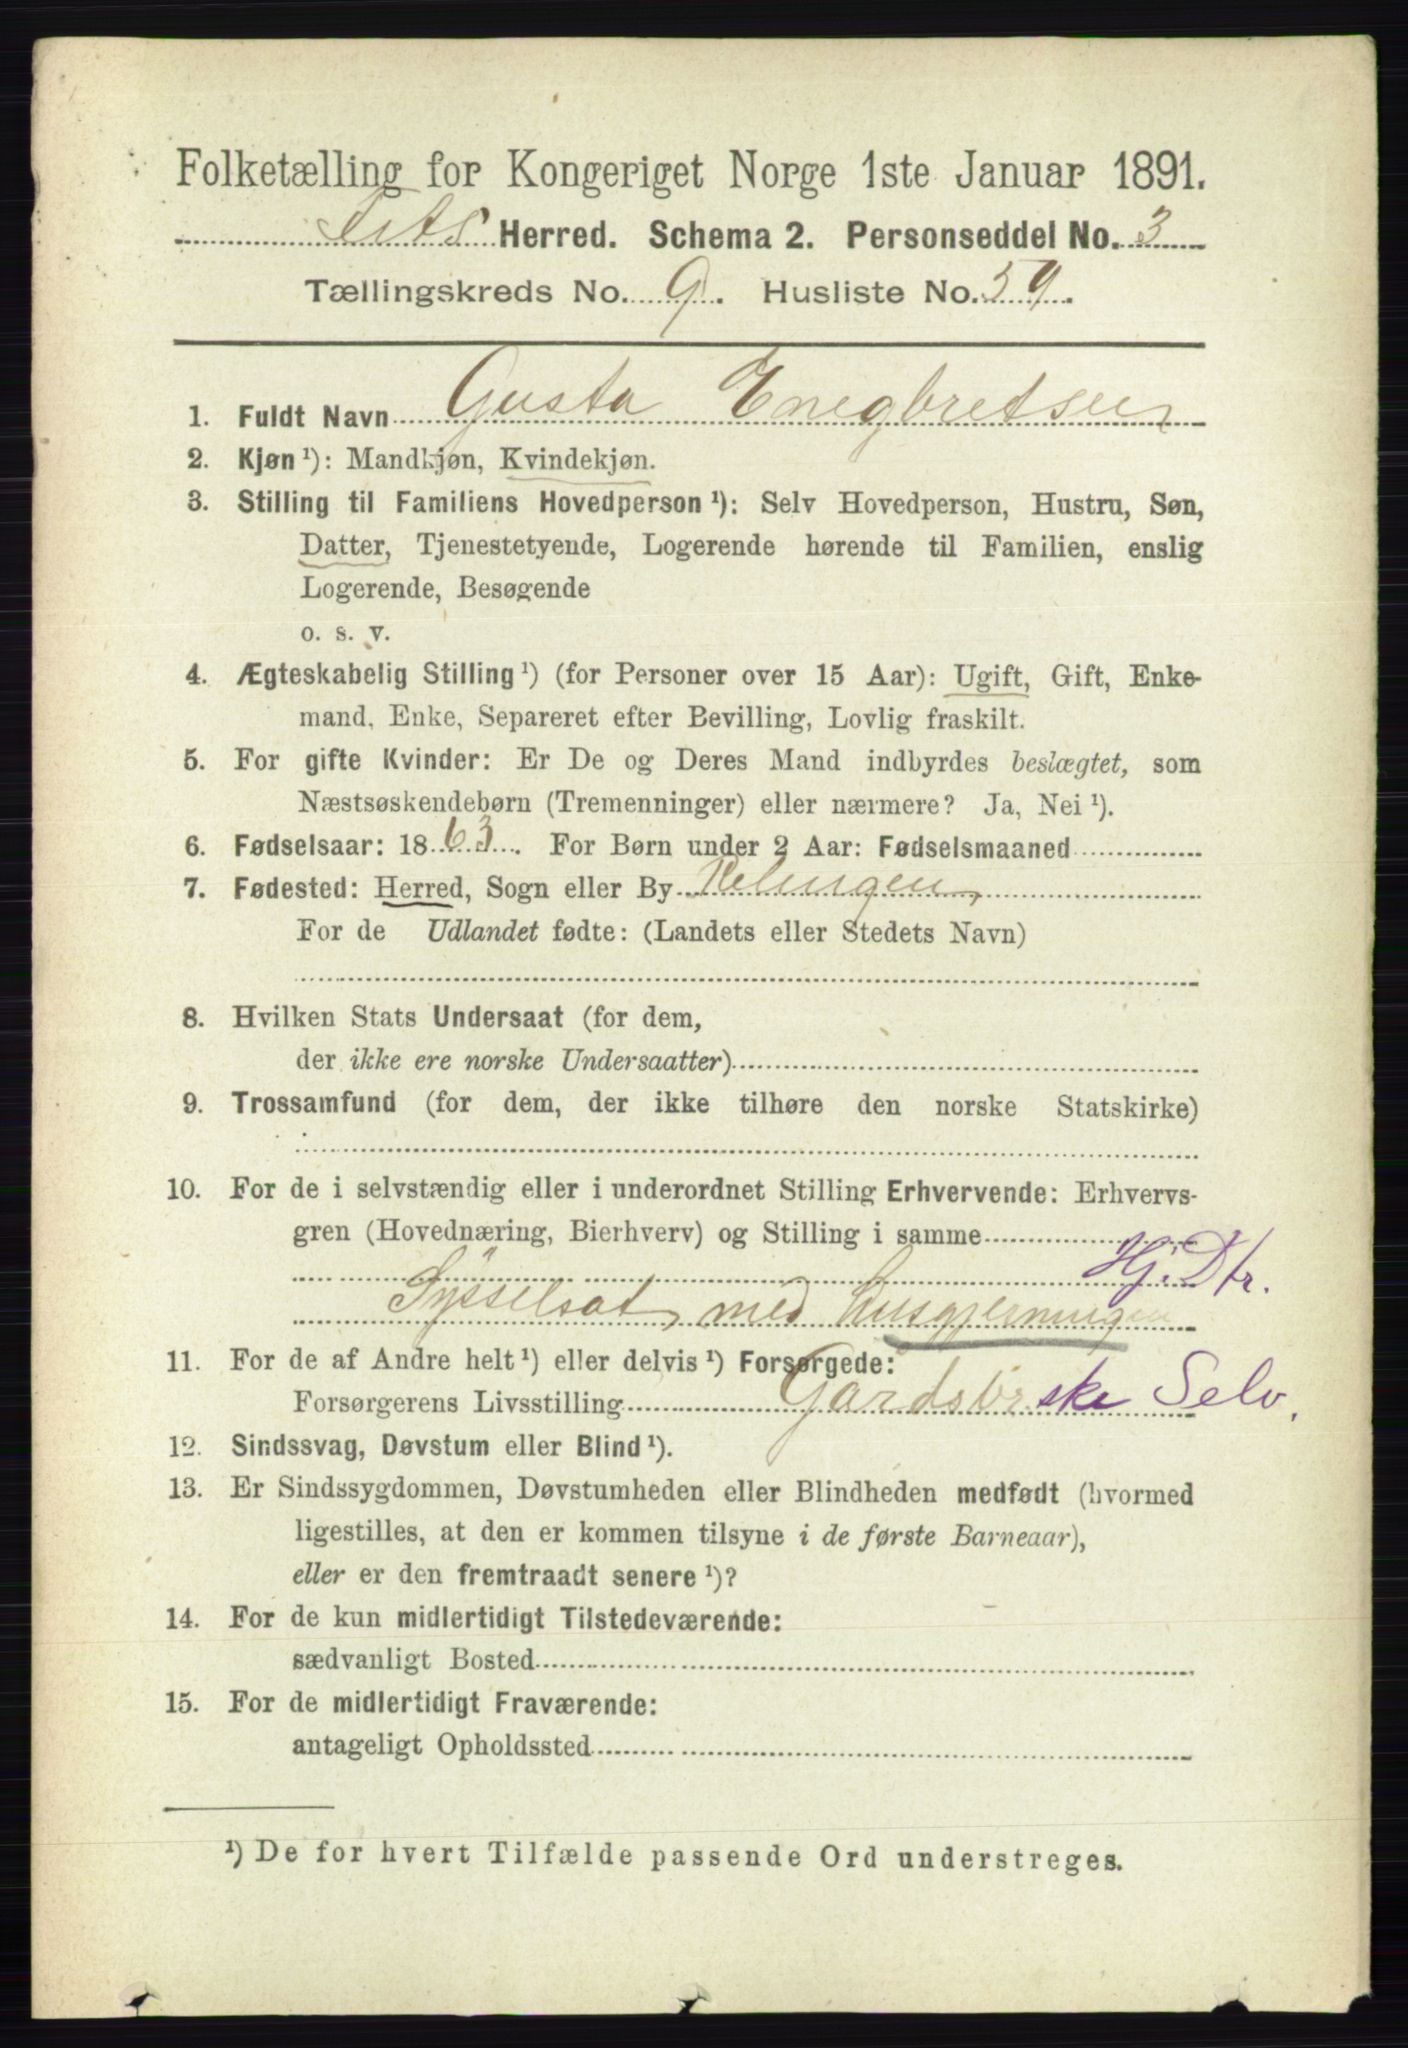 Folketælling for Kongeriget Norge 1ste Januar 1891.
Fets Herred. Schema 2. Personseddel No. 3
Tællingskreds No. 9. Husliste No. 59.
1. Fuldt Navn Gusta Enegbretsen
2. Kjøn ¹): Mandkjøn, Kvindekjøn.
3. Stilling til Familiens Hovedperson ¹): Selv Hovedperson, Hustru, Søn,
Datter, Tjenestetyende, Logerende hørende til Familien, enslig
Logerende, Besøgende
o. s. v.
4. Ægteskabelig Stilling ¹) (for Personer over 15 Aar): Ugift, Gift, Enke-
mand, Enke, Separeret efter Bevilling, Lovlig fraskilt.
5. For gifte Kvinder: Er De og Deres Mand indbyrdes beslægtet, som
Næstsøskendebørn (Tremenninger) eller nærmere? Ja, Nei ¹).
6. Fødselsaar: 1863. For Børn under 2 Aar: Fødselsmaaned
7. Fødested: Herred, Sogn eller By Relingen,
For de Udlandet fødte: (Landets eller Stedets Navn)
8. Hvilken Stats Undersaat (for dem,
der ikke ere norske Undersaatter)
9. Trossamfund (for dem, der ikke tilhøre den norske Statskirke)
10. For de i selvstændig eller i underordnet Stilling Erhvervende: Erhvervs-
gren (Hovednæring, Bierhverv) og Stilling i samme
Hj. Dtr.
Sysselsat, med husgjerningen
11. For de af Andre helt ¹) eller delvis ¹) Forsørgede:
Forsørgerens Livsstilling Gardsbrske Selv.
12. Sindssvag, Døvstum eller Blind ¹).
13. Er Sindssygdommen, Døvstumheden eller Blindheden medfødt (hvormed
ligestilles, at den er kommen tilsyne i de første Barneaar),
eller er den fremtraadt senere ¹)?
14. For de kun midlertidigt Tilstedeværende:
sædvanligt Bosted
15. For de midlertidigt Fraværende:
antageligt Opholdssted
¹) De for hvert Tilfælde passende Ord understreges.